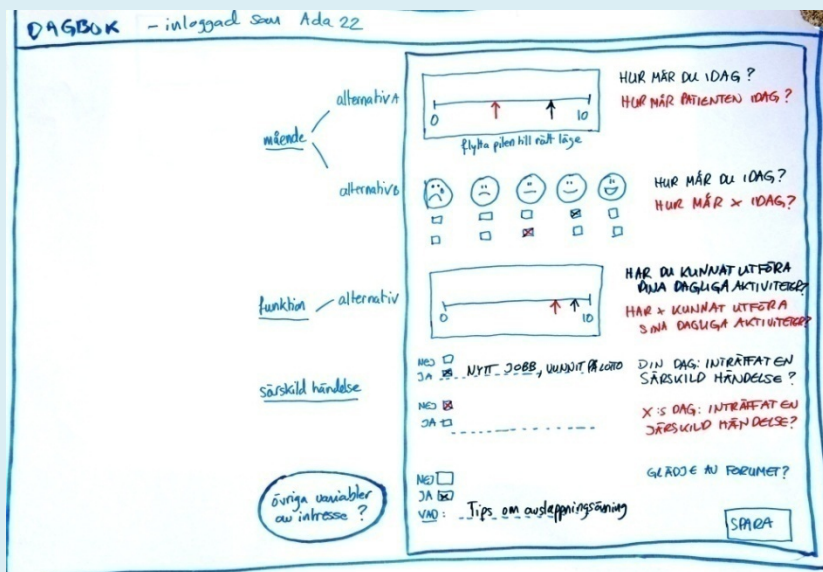 DAGBOK - inloggad som Ada 22
alternativ A
0
10
HUR MÅR DU IDAG?
HUR MÅR PATIENTEN IDAG?
flytta pilen till rätt läge
mående
alternativ B
HUR MÅR DU IDAG?
HUR MÅR X IDAG?
funktion
alternativ
0
10
HAR DU KUNNAT UTFÖRA
DINA DAGLIGA AKTIVITETER?
HAR X KUNNAT UTFÖRA
SINA DAGLIGA AKTIVITETER?
särskild händelse
NEJ
JA NYTT JOBB, VUNNIT PÅ LOTTO
DIN DAG: INTRÄFFAT EN
SÄRSKILD HÄNDELSE?
NEJ
JA
X:S DAG: INTRÄFFAT EN
SÄRSKILD HÄNDELSE?
övriga variabler
av intresse?
NEJ
JA
VAD: Tips om avslappningsövning
GLÄDJE AV FORUMET?
SPARA